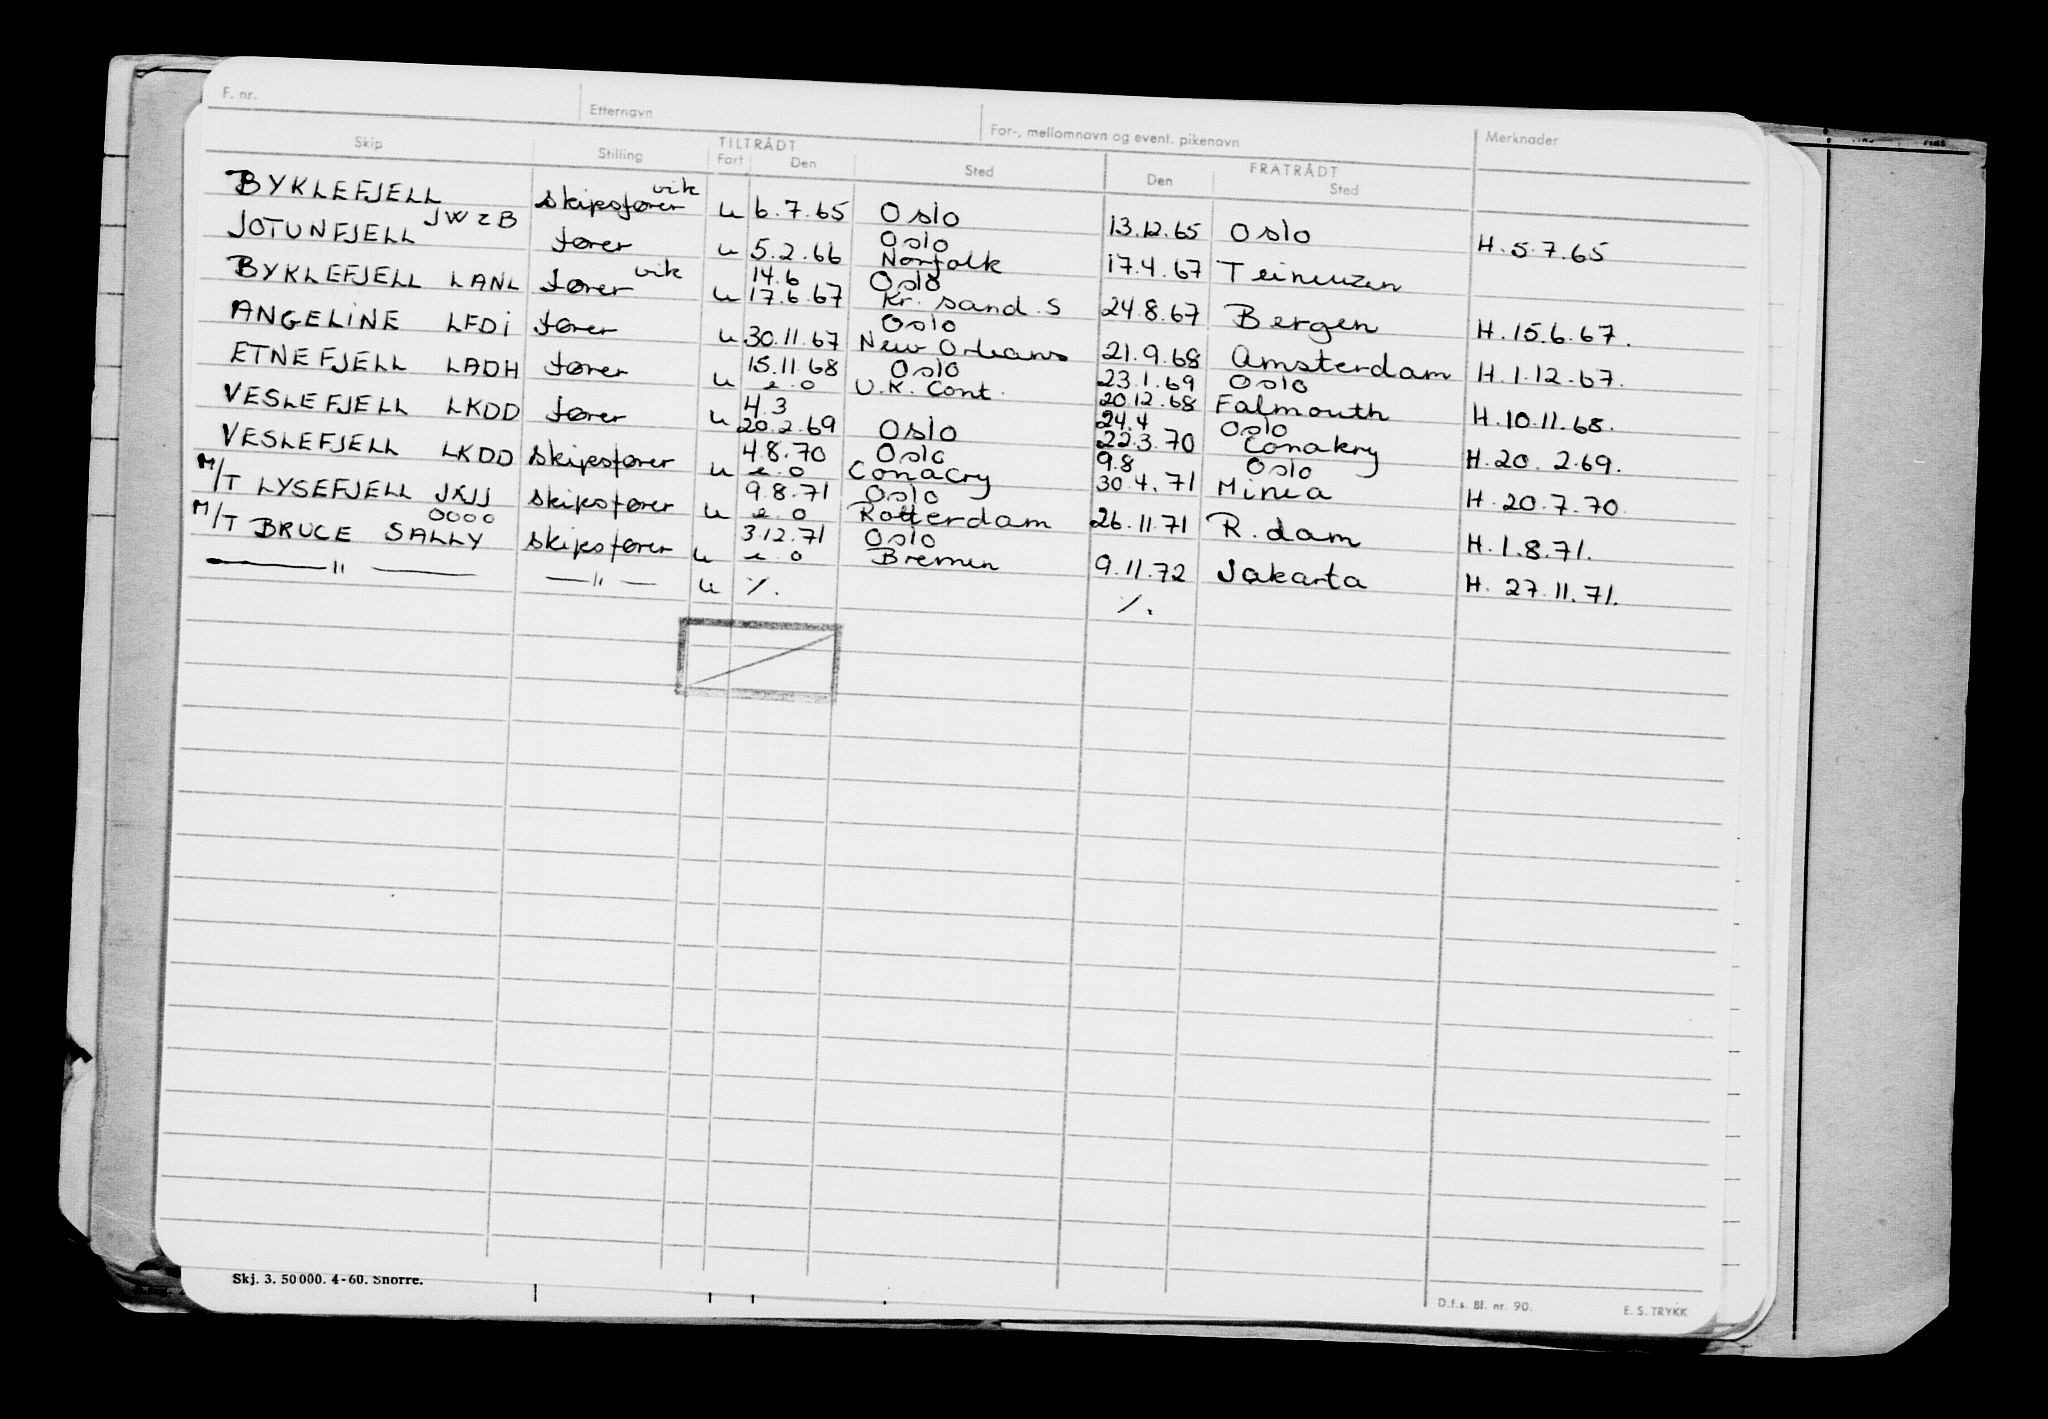 F. nr. Etternavn For-, mellomnavn og event. pikenavn Merknader
Skip Stilling TILTRÅDT Fart Den Sted FRATRÅDT Den Sted
BYKLEFJELL skipsfører vik u 6.7.65 Oslo 13.12.65 Oslo H. 5.7.65
JOTUNFJELL JWZB fører u 5.2.66 Oslo Norfolk 17.4.67
BYKLEFJELL LANL fører vik u 14.6 17.6.67 Oslo Kr. sand. S 24.8.67 Bergen H. 15.6.67.
ANGELINE LFDI fører u 30.11.67 Oslo New Orleans 21.9.68 Amsterdam H. 1.12.67.
ETNEFJELL LADH fører u 15.11.68 e.o Oslo U.K. Cont. 23.1.69 20.12.68 Oslo Falmouth H. 10.11.68.
VESLEFJELL LKDD fører u 4.3 20.2.69 Oslo 24.4 22.3.70 Oslo Conakry H. 20. 2.69.
VESLEFJELL LKDD skipsfører u 4.8.70 e.o Oslo Conacry 9.8 30.4.71 Oslo Minea H. 20.7.70
M/T LYSEFJELL JXJJ skipsfører u 9.8.71 e.o Oslo Rotterdam 26.11.71 R.dam H. 1.8.71.
M/T BRUCE SALLY OOOO skipsfører u 3.12.71 e.o Oslo Bremen 9.11.72 Jakarta H. 27.11.71.
—"— —"— u %. %.
Skj. 3. 50 000. 4-60. Snorre.
D.f.s. Bl. nr. 90. E. S. TRYKK